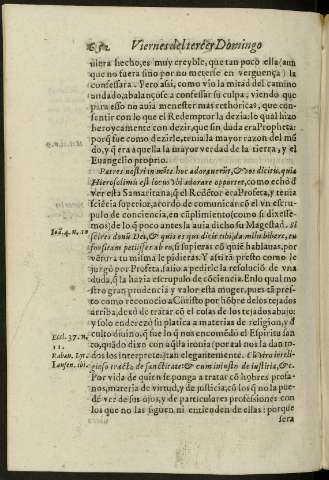 652 Viernes del tercer Domingo
uiera hecho, es muy creyble, que tan poco ella (aun
que no fuera sino por no meterse en verguença) la
confessara. Pero assi, como vio la mitad del camino
andado, abalançose a confessar su culpa, viendo que
para esso no auia menester mas rethorica, que con-
sentir con lo que el Redemptor la dezia: lo qual hizo
heroycamente con dezir, que sin duda era Propheta:
porq̃ fue como dezirle, tenia la mayor razon del mũ
do, y q̃ era aquella la mayor verdad de la tierra, y el
Euangelio proprio.
Patres nostri in mõte hoc adorauerũt, & vos dicitis, quia
Hierosolimis est locus vbi adorare oportet, como echó d̃
ver esta Samaritana, q̃ el Redẽtor era Profeta, y tenia
sciẽcia superior, acordo de comunicar cõ el vn escru-
pulo de conciencia, en cũplimiento (como si dixesse-
mos) de lo q̃ poco antes la auia dicho su Magestad. Si
Ioã. 4. n. 10
scires donũ Dei, & quis es qui dicit tibi, da mihi bibere, tu
forsitam petiisses ab eo, si supieras cõ quiẽ hablauas, por
ventura tu misma le pidieras. Y assi tã presto como le
juzgó por Profeta, salio a pedirle la resoluciõ de vna
duda, q̃ la hazia escrupulo de cõciencia. En lo qual mo
stro gran prudencia y valor esta muger, pues tã pres-
to como reconocio a Christo por hõbre de los tejados
arriba, dexó de tratar cõ el cosas de los tejados abaxo:
y solo enderezó su platica a materias de religion, y d̃l
culto diuino, q̃ fue lo que nos encomẽdó el Espiritu san
Eccl. 37. n.
to, quãdo dixo con aq̃lla ironia (por tal nos la dan to-
11.
Raban. Lyr.
dos los interpretes) tan elegantemente. Cũ viro irreli-
Iansen. ibi.
gioso tracta de sanctitate: & cum iniusto de iustitia, &c.
Por vida de quien se ponga a tratar cõ hõbres profa-
nos, materia de virtud, y de justicia, cõ los q̃ no la pue-
dẽ ver de sus ojos, y de particulares professiones con
los que no las siguen, ni entienden de ellas: porque
sera